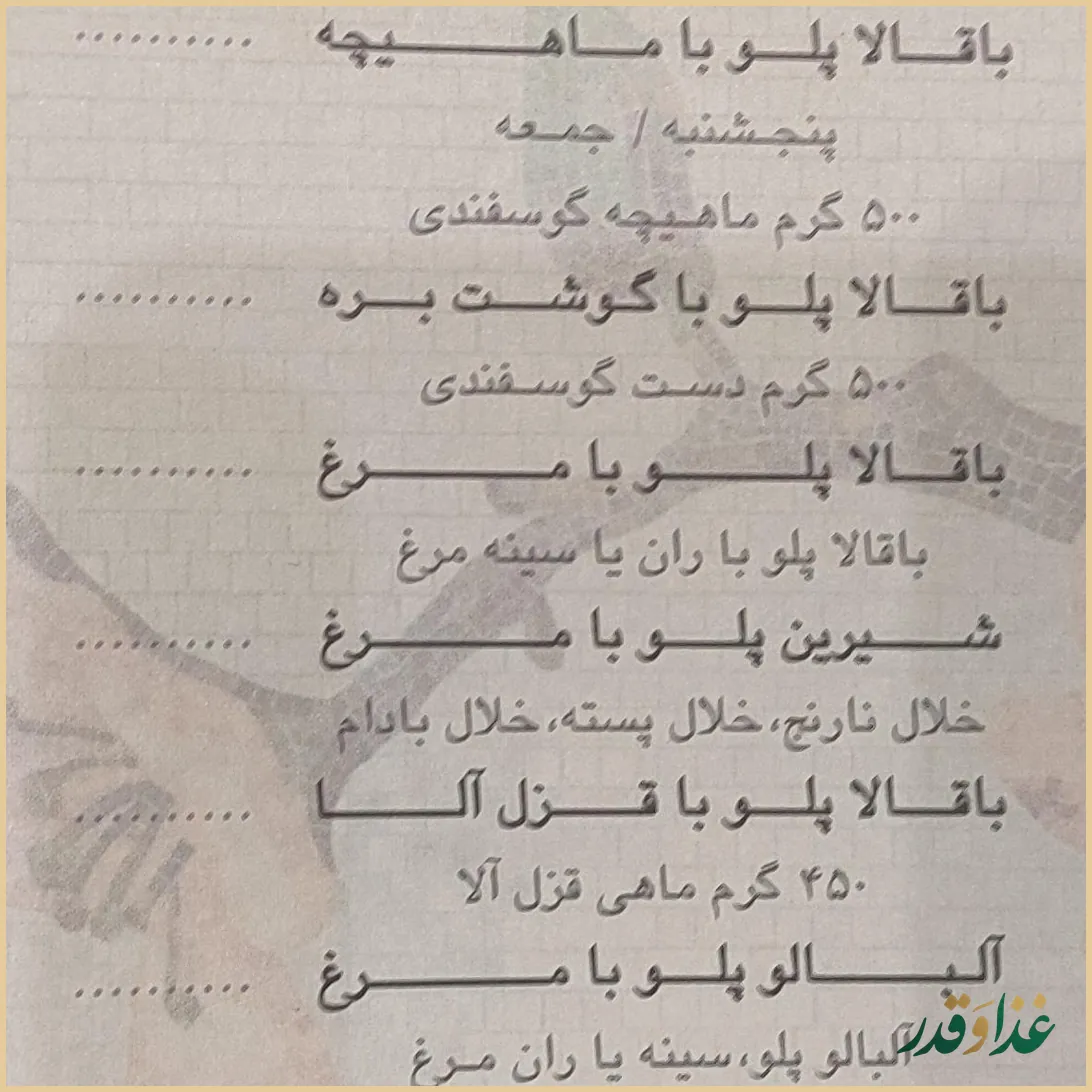 باقالا پلو با ماهیچه ..........
پنجشنبه / جمعه
۵۰۰ گرم ماهیچه گوسفندی
باقالا پلو با گوشت بره ..........
۵۰۰ گرم دست گوسفندی
باقالا پلو با مرغ ..........
باقالا پلو با ران یا سینه مرغ
شیرین پلو با مرغ ..........
خلال نارنج، خلال پسته، خلال بادام
باقالا پلو با قزل آلا ..........
۴۵۰ گرم ماهی قزل آلا
آلبالو پلو با مرغ ..........
آلبالو پلو، سینه یا ران مرغ
غذا و قدر